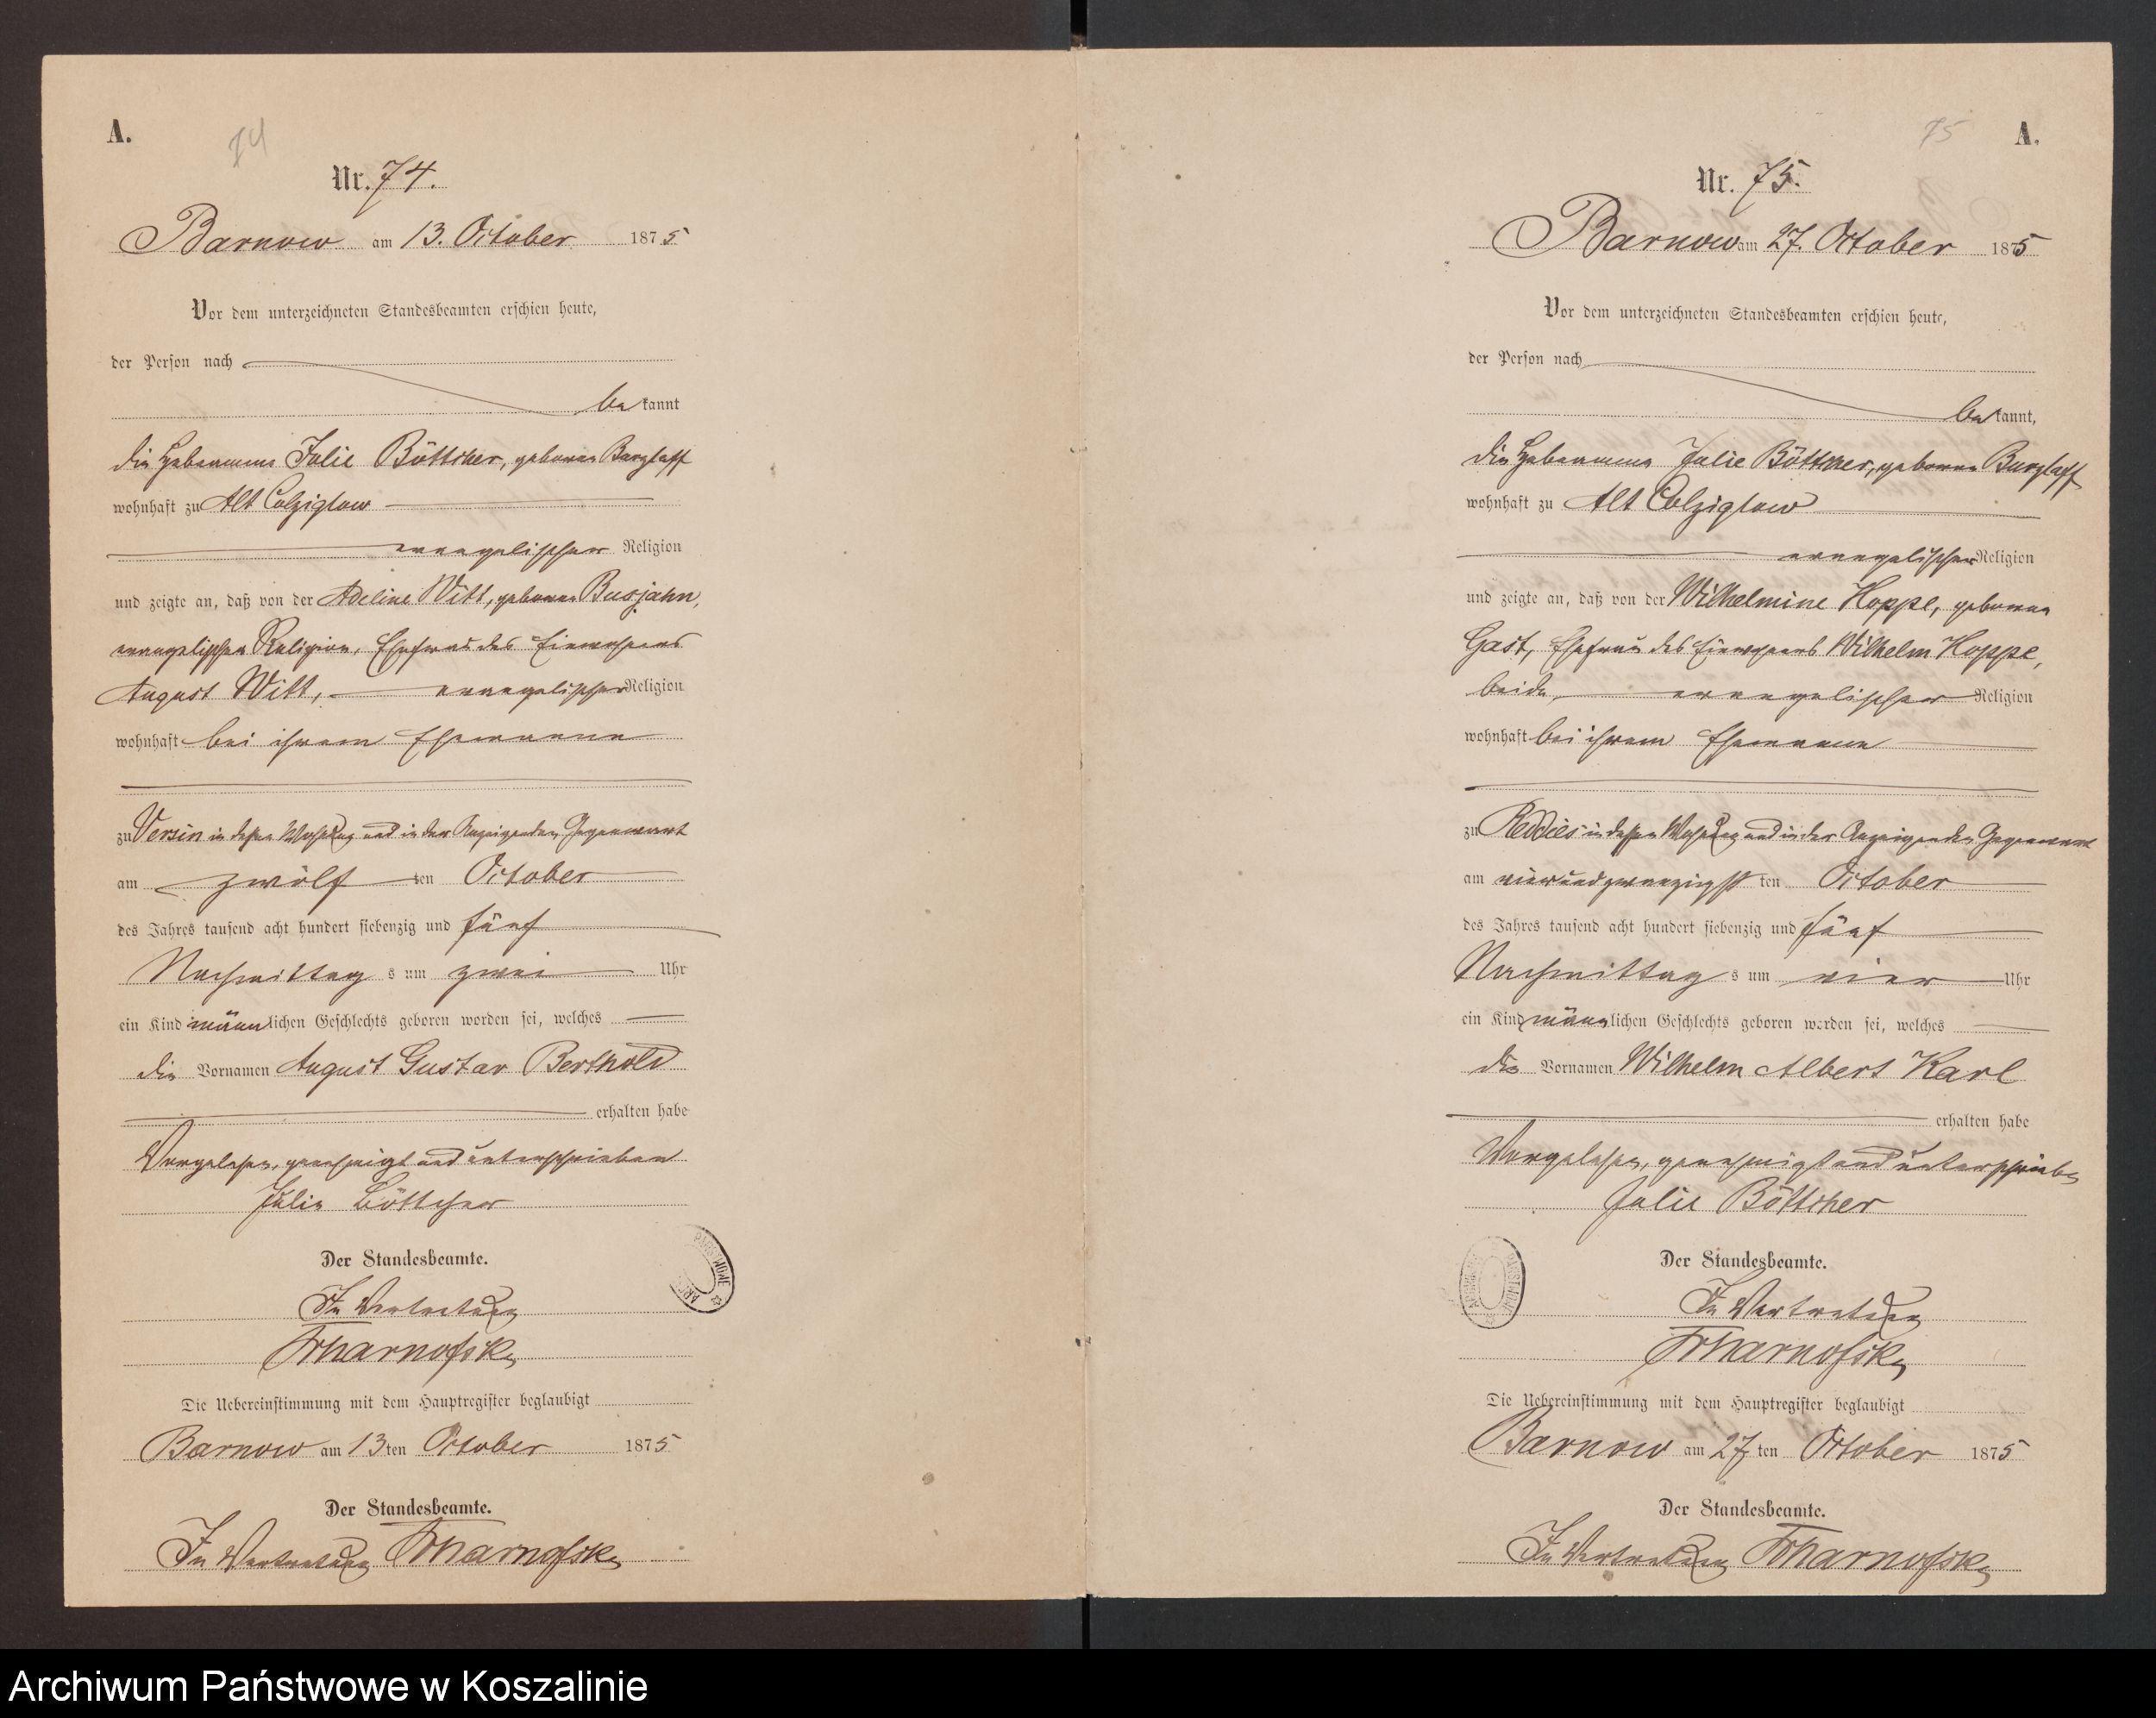 A.
74
Nr. 74.
Barnow am 13. October 1875
Vor dem unterzeichneten Standesbeamten erschien heute,
der Person nach
bekannt
die Hebamme Julie Böttcher, geborne Barzlaff
wohnhaft zu Alt Colziglow
evangelischer Religion
und zeigte an, daß von der Adeline Witt, geborne Busjahn,
evangelischer Religion, Ehefrau des Einwohners
August Witt, evangelischer Religion
wohnhaft bei ihrem Ehemanne
zu Versin in dessen Wohnung und in der Anzeigenden Gegenwart
am zwölf ten October
des Jahres tausend acht hundert siebenzig und fünf
Nachmittag s um zwei Uhr
ein Kind männlichen Geschlechts geboren worden sei, welches
die Vornamen August Gustav Berthold
erhalten habe
Vorgelesen, genehmigt und unterschrieben
Julie Böttcher
Der Standesbeamte.
In Vertretung
Die Uebereinstimmung mit dem Hauptregister beglaubigt
Barnow am 13ten October 1875
Der Standesbeamte.
In Vertretung
75
A.
Nr. 75.
Barnow am 27. October 1875
Vor dem unterzeichneten Standesbeamten erschien heute,
der Person nach
bekannt,
die Hebamme Julie Böttcher, geborne Barzlaff
wohnhaft zu Alt Colziglow
evangelischer Religion
und zeigte an, daß von der Wilhelmine Hoppe, geborne
Gast, Ehefrau des Einwohners Wilhelm Hoppe,
beide, evangelischer Religion
wohnhaft bei ihrem Ehemanne
zu Reddies in dessen Wohnung und in der Anzeigenden Gegenwart
am vierundzwanzigst ten October
des Jahres tausend acht hundert siebenzig und fünf
Nachmittag s um vier Uhr
ein Kind männlichen Geschlechts geboren worden sei, welches
die Vornamen Wilhelm Albert Karl
erhalten habe
Vorgelesen, genehmigt und unterschrieben
Julie Böttcher
Der Standesbeamte.
In Vertretung
Die Uebereinstimmung mit dem Hauptregister beglaubigt
Barnow am 27ten October 1875
Der Standesbeamte.
In Vertretung
Archiwum Państwowe w Koszalinie